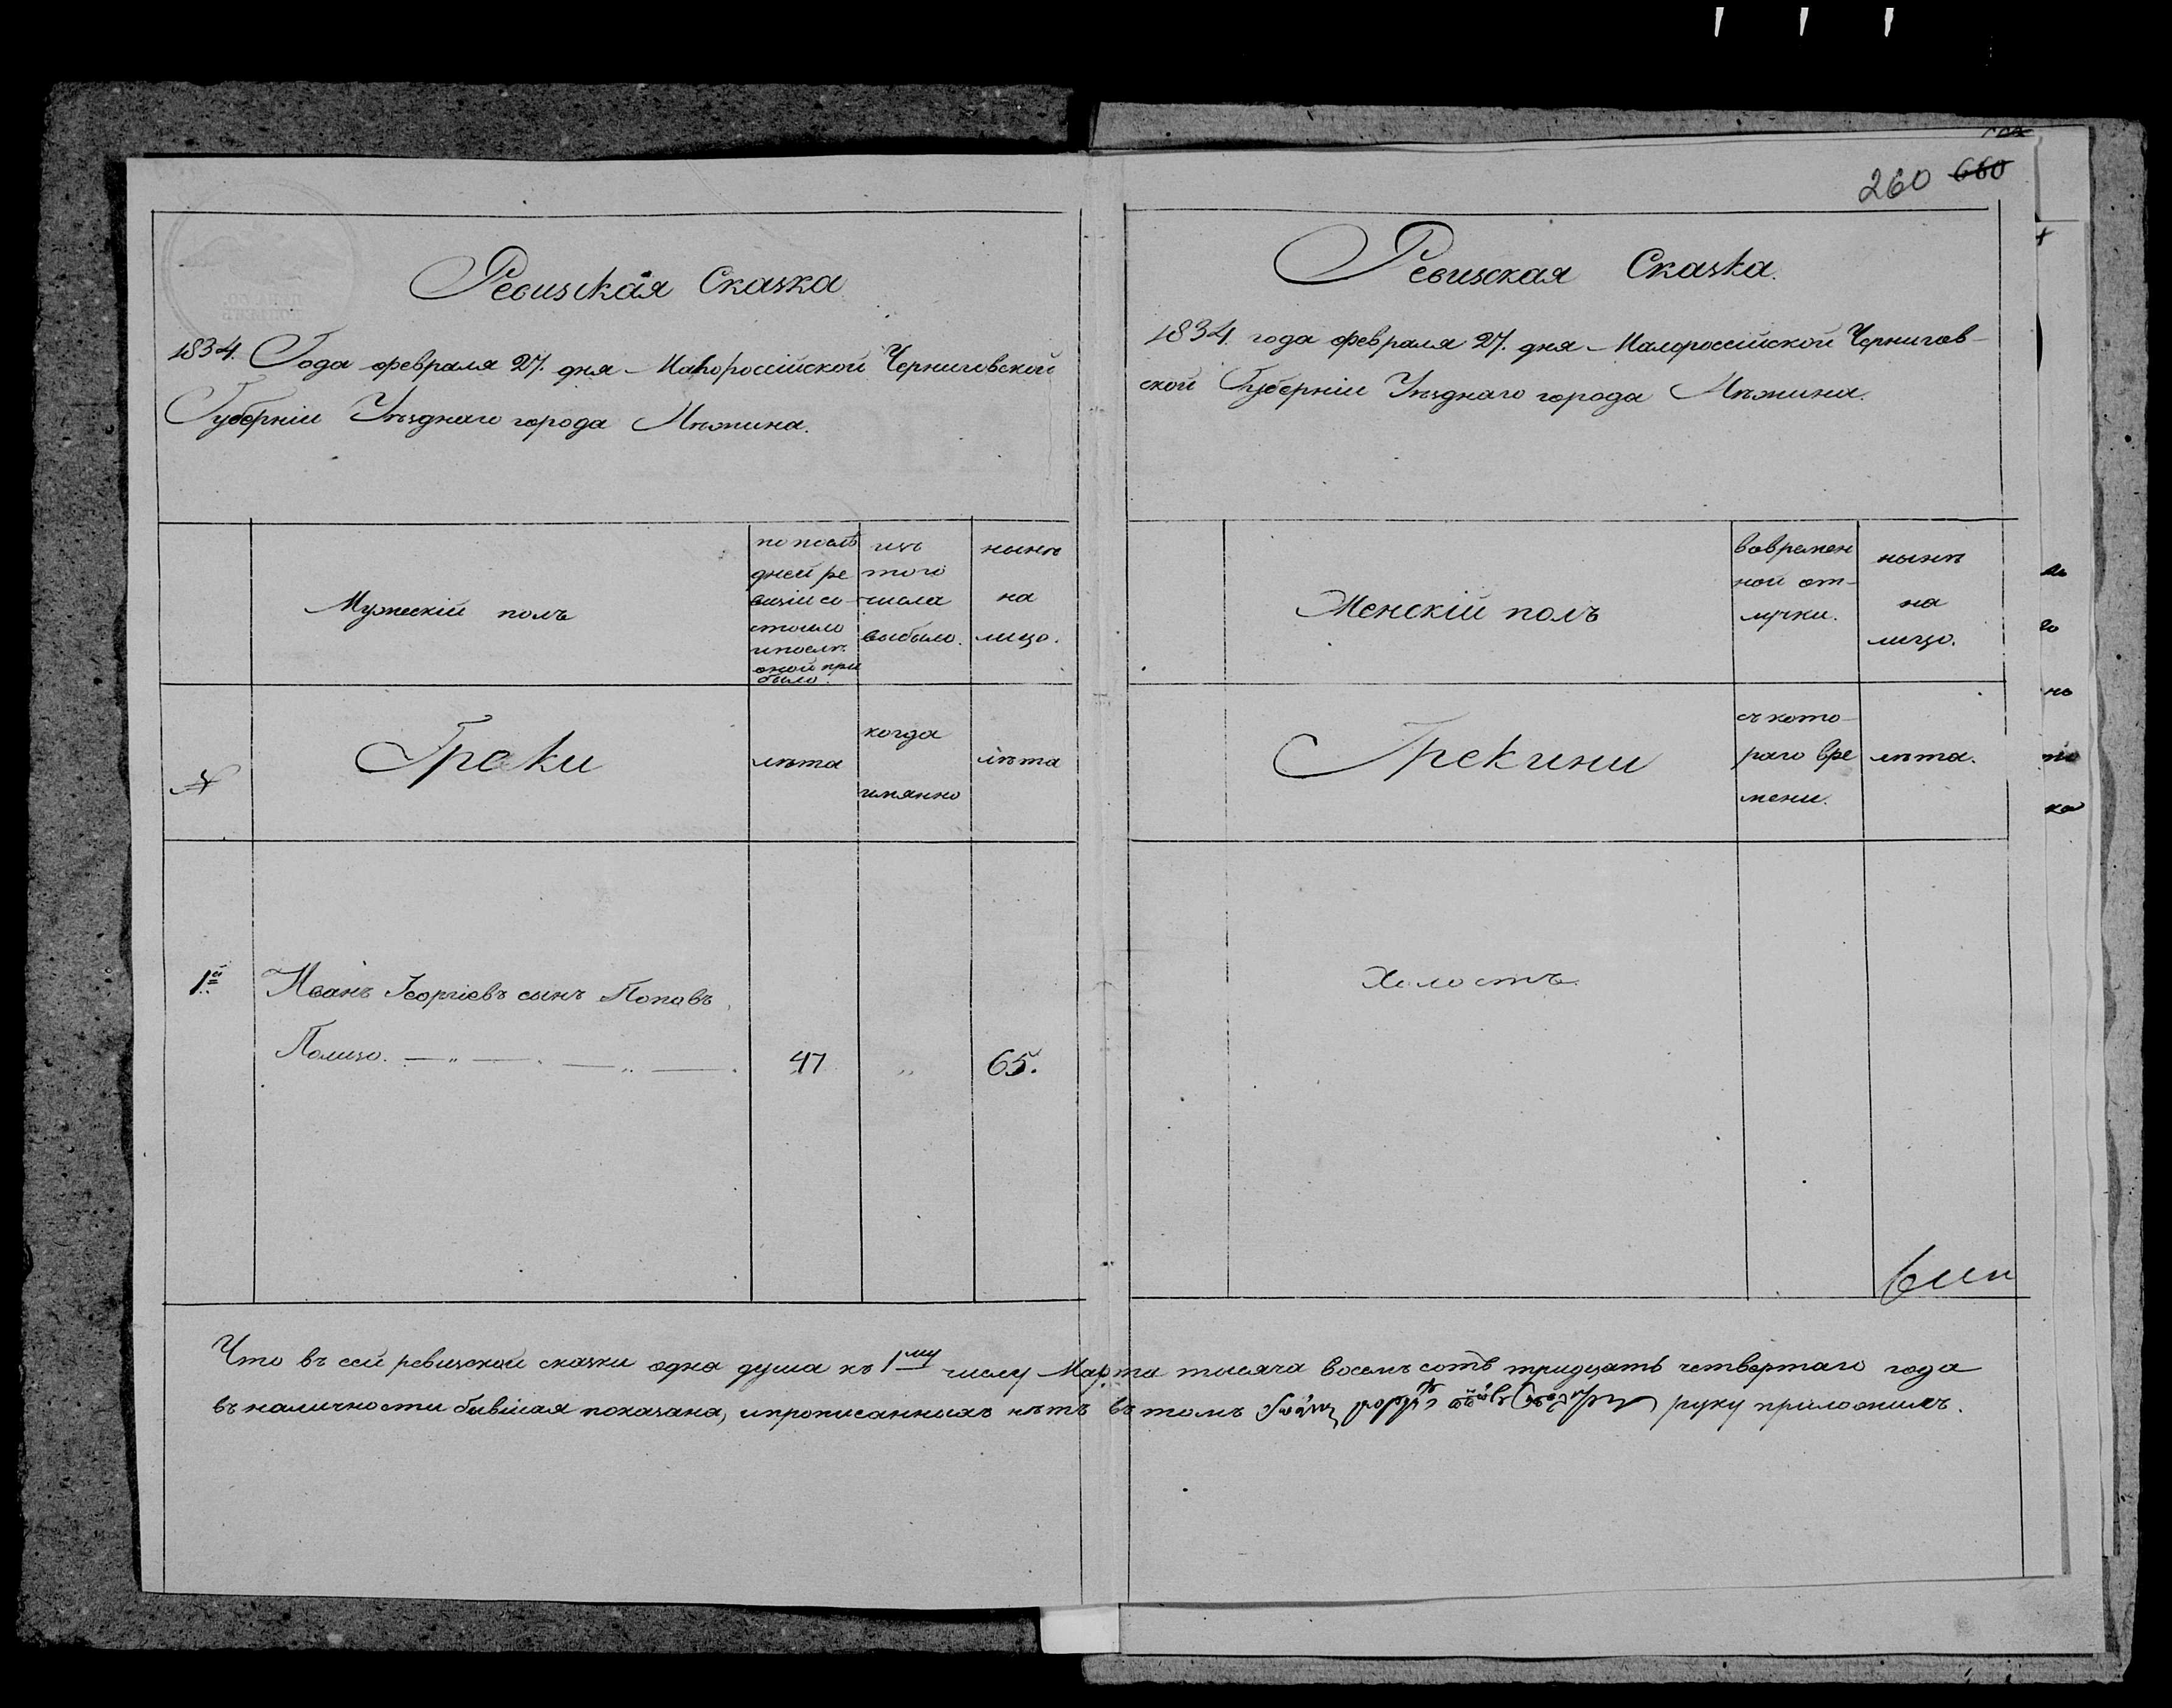 260 660
Ревизская Сказка
1834. Года февраля 27. дня Малороссійской Черниговской
Губерніи Уѣзднаго города Нѣжина.
Мужескій полъ
по послѣ
дней ре
визіи со
стояло
и послѣ
оной при
было.
изъ
того
числа
выбыло.
нынѣ
на
лицо.
№
Греки
лѣта
когда
имянно
лѣта
1й
Иванъ Георгіевъ сынъ Поповъ
47
„
65.
Ревизская Сказка.
1834. года февраля 27. дня Малороссійской Чернигов-
ской Губерніи Уѣзднаго города Нѣжина.
Женскій полъ
во времен
ной от-
лучки.
нынѣ
на
лицо.
Грекини
съ кото-
раго вре
мени.
лѣта.
Холостъ.
Что въ сей ревизской сказки одна душа къ 1му числу Марта тысяча восемъ сотъ тридцать четвертаго года
въ наличности бывшая показана, и прописанныхъ нѣтъ въ томъ руку приложилъ.